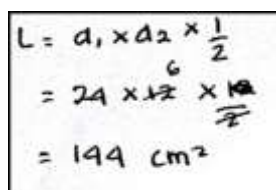 L = d₁ × d₂ × 1/2
= 24 × 12 6 × 2
= 144 cm²